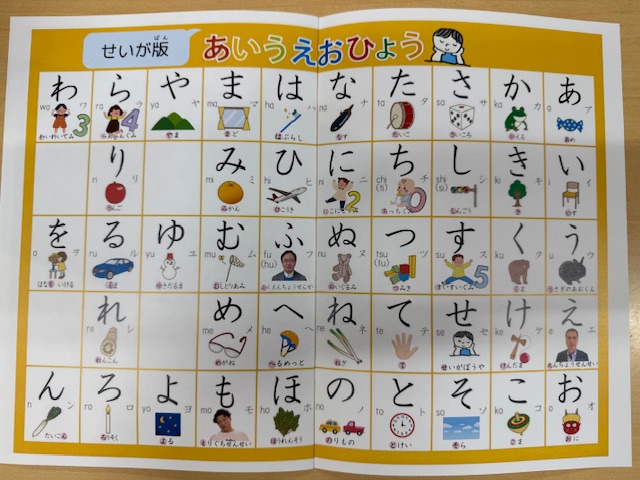 せいが版
ばん
あいうえおひょう
あ
a ア
あめ
い
i イ
いす
う
u ウ
うさぎのあおくん
え
e エ
えんちょうせんせい
お
o オ
おに
か
ka カ
かえる
き
ki キ
き
く
ku ク
くま
け
ke ケ
けんだま
こ
ko コ
こま
さ
sa サ
さいころ
し
shi シ
(si)
しんごう
す
su ス
5
すいすいぐみ
せ
se セ
せいがぼうや
そ
so ソ
そら
た
ta タ
たいこ
ち
chi チ
(ti)
0
つ
tsu ツ
(tu)
つみき
て
te テ
て
と
to ト
とけい
な
na ナ
なす
に
ni ニ
2
にこにこぐみ
ぬ
nu ヌ
ぬいぐるみ
ね
ne ネ
ねぎ
の
no ノ
のりもの
は
ha ハ
はぶらし
ひ
hi ヒ
ひこうき
ふ
fu フ
(hu)
ふくえんちょうせんせい
へ
he ヘ
へるめっと
ほ
ho ホ
ほうれんそう
ま
ma マ
まど
み
mi ミ
みかん
む
mu ム
むしとりあみ
め
me メ
めがね
も
mo モ
もりぐちせんせい
や
ya ヤ
やま
ゆ
yu ユ
ゆきだるま
よ
yo ヨ
よる
ら
ra ラ
4
り
ri リ
りんご
る
ru ル
くるま
れ
re レ
れんこん
ろ
ro ロ
ろうそく
わ
wa ワ
3
わいわいぐみ
を
o ヲ
はなを いける
ん
n ン
だいこん